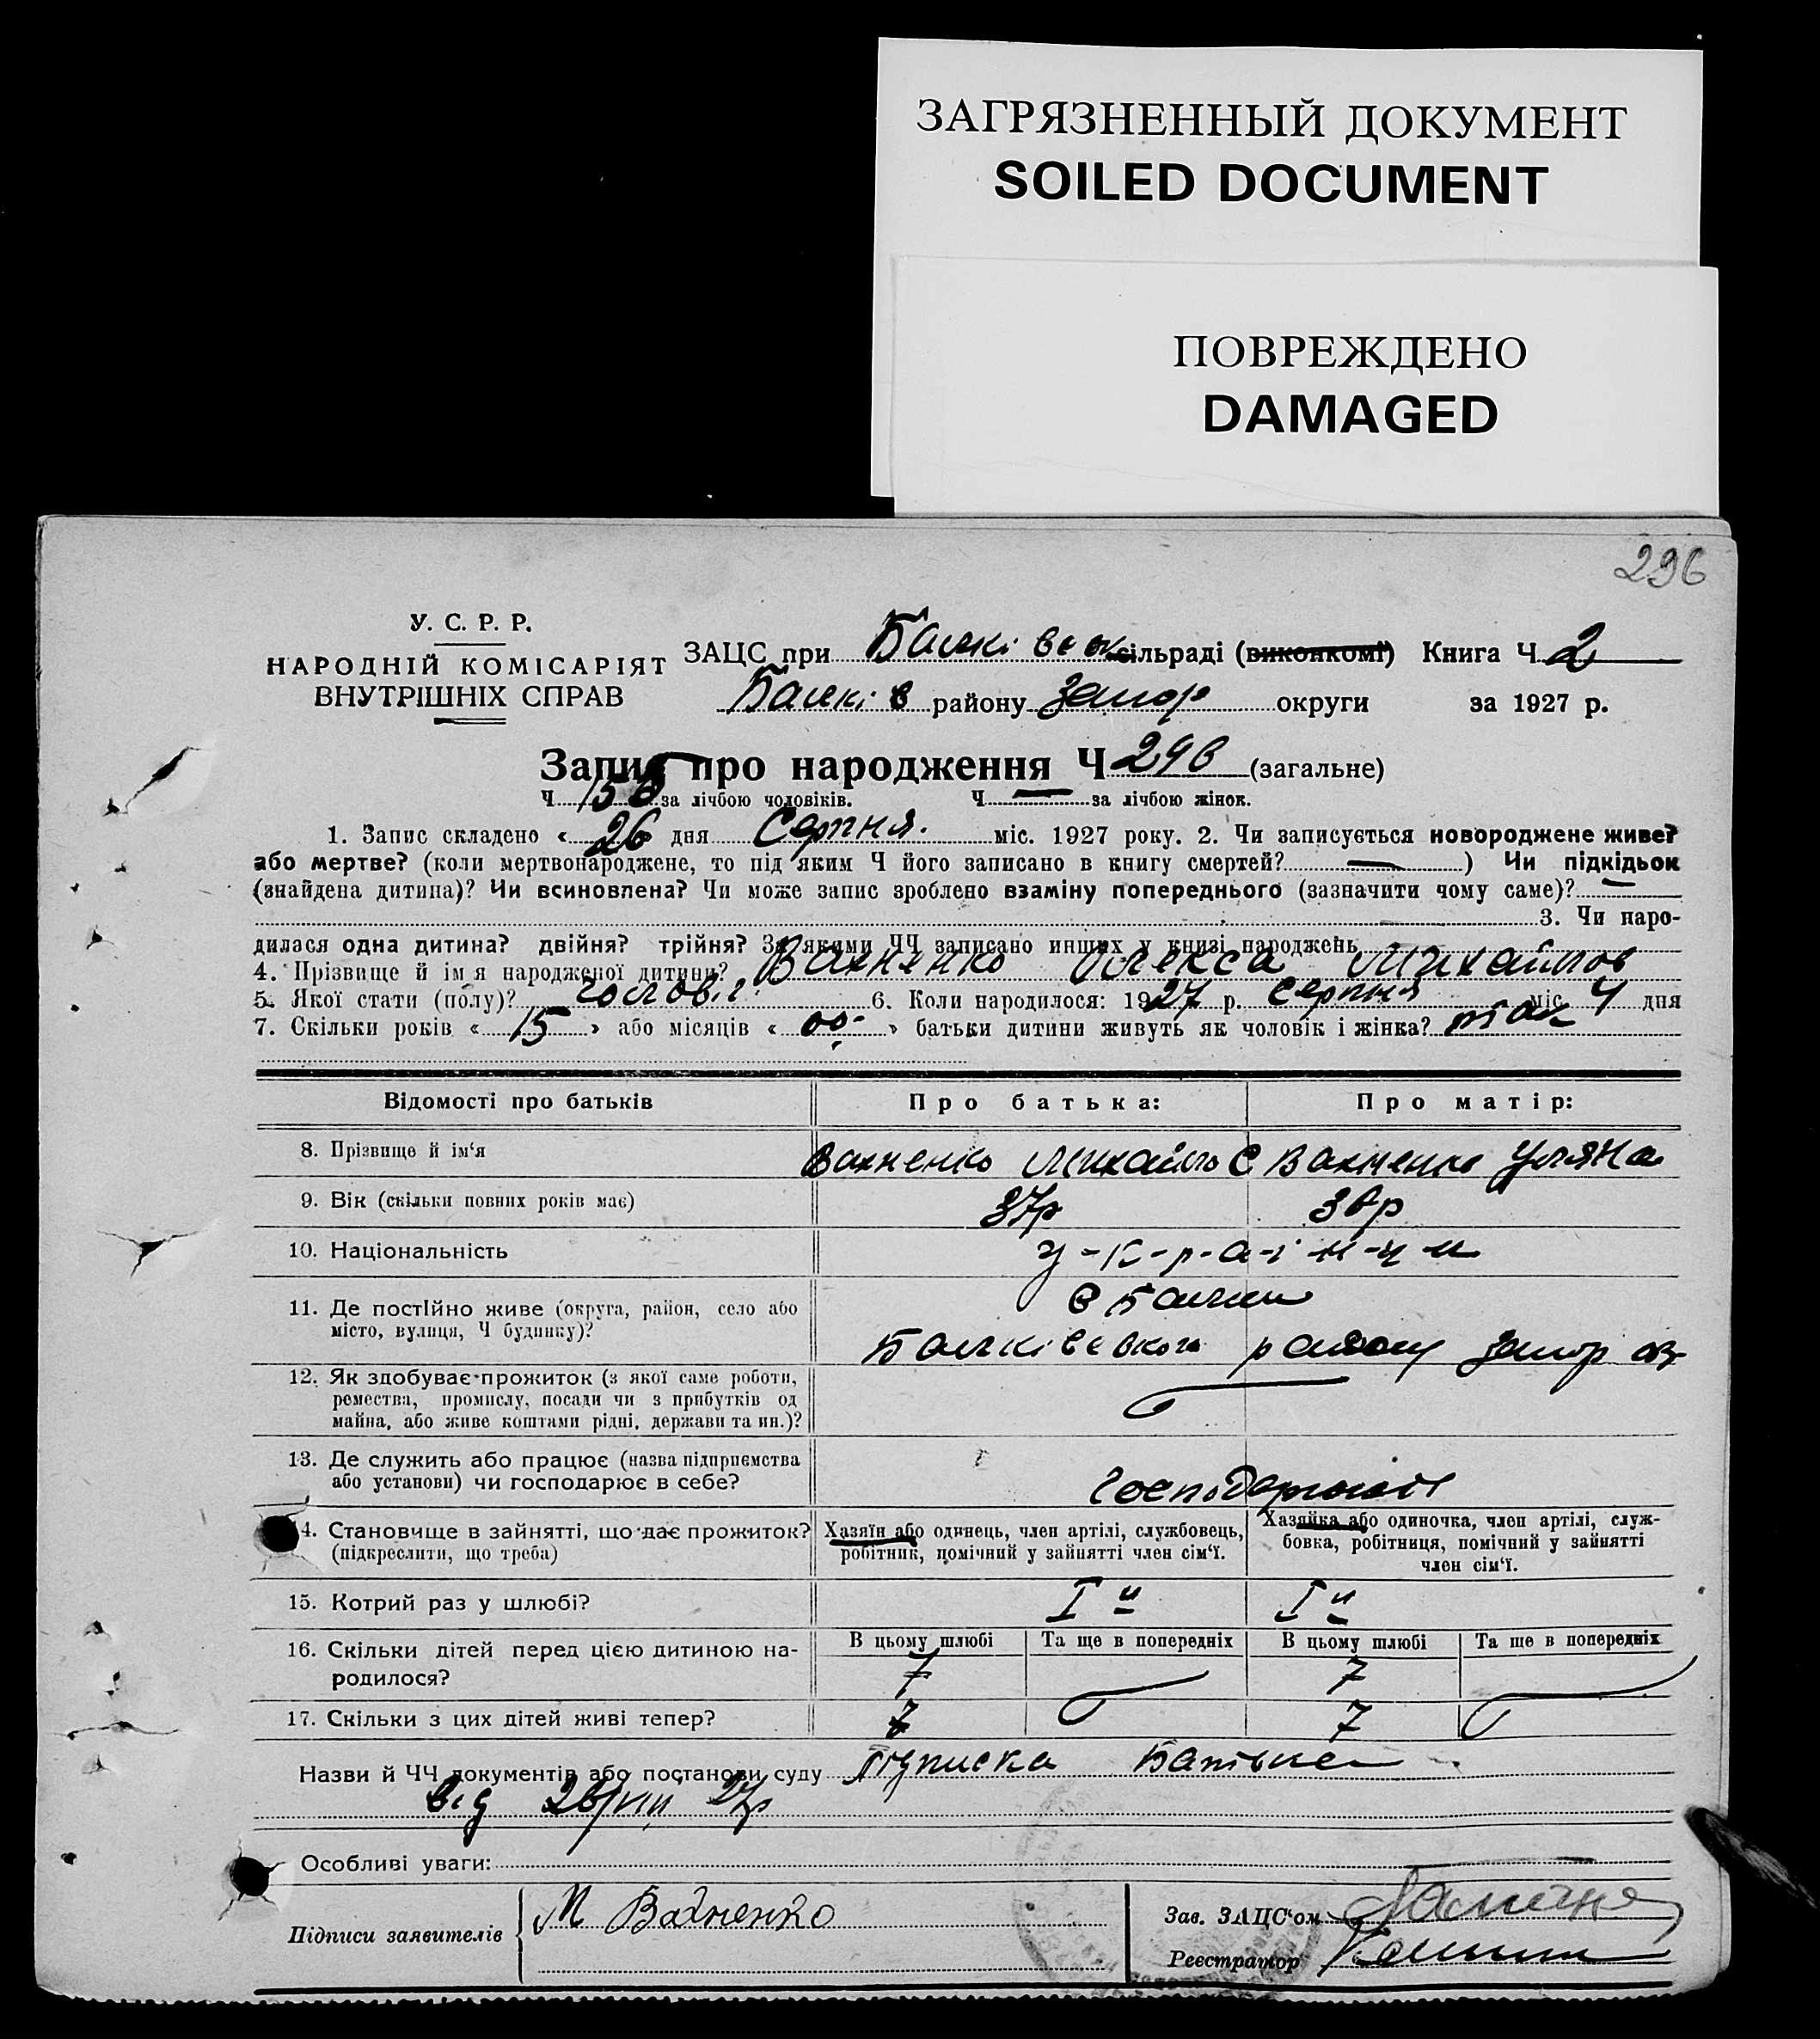 ЗАГРЯЗНЕННЫЙ ДОКУМЕНТ
SOILED DOCUMENT
ПОВРЕЖДЕНО
DAMAGED
296
У. С. Р. Р.
НАРОДНІЙ КОМІСАРІЯТ
ВНУТРІШНІХ СПРАВ
ЗАЦС при Балківськ сільраді (виконкомі) Книга Ч 2
Балків району Запор округи за 1927 р.
Запис про народження Ч 296 (загальне)
Ч 156 за лічбою чоловіків. Ч — за лічбою жінок.
1. Запис складено « 26 дня Серпня. міс. 1927 року. 2. Чи записується новороджене живе?
або мертве? (коли мертвонароджене, то під яким Ч його записано в книгу смертей? — ) Чи підкідьок
(знайдена дитина)? Чи всиновлена? Чи може запис зроблено взаміну попереднього (зазначити чому саме)? —
3. Чи наро-
дилася одна дитина? двійня? трійня? За якими ЧЧ записано инших у книзі народжень
4. Прізвище й імя народженої дитини? Вахненко Олекса Михайлов
5. Якої стати (полу)? чоловіч. 6. Коли народилося: 1927 р. Серпня міс. 4 дня
7. Скільки років « 15 » або місяців « 00 » батьки дитини живуть як чоловік і жінка? так
Відомості про батьків Про батька: Про матір:
8. Прізвище й ім'я Вахненко Михайло С Вахненко Уляна
9. Вік (скільки повних років має) 37р 36р
10. Національність У-к-р-а-ї-н-ц-и
11. Де постійно живе (округа, район, село або
місто, вулиця, Ч будинку)?
С Балки
Балківського району Запор ок
12. Як здобуває прожиток (з якої саме роботи,
ремества, промислу, посади чи з прибутків од
майна, або живе коштами рідні, держави та ин.)?
13. Де служить або працює (назва підприємства
або установи) чи господарює в себе?
14. Становище в зайнятті, що дає прожиток?
(підкреслити, що треба)
Хазяїн або одинець, член артілі, службовець,
робітник, помічний у зайнятті член сім'ї.
Хазяйка або одиночка, член артілі, служ-
бовка, робітниця, помічний у зайнятті
член сім'ї.
15. Котрий раз у шлюбі? I й I й
16. Скільки дітей перед цією дитиною на-
родилося?
В цьому шлюбі Та ще в попередніх В цьому шлюбі Та ще в попередніх
7 7
17. Скільки з цих дітей живі тепер? 7 7
Назви й ЧЧ документів або постанови суду Підписка Батька
від 26/VIII 27р
Особливі уваги:
Підписи заявителів М Вахненко
Зав. ЗАЦС'ом
Реєстратор